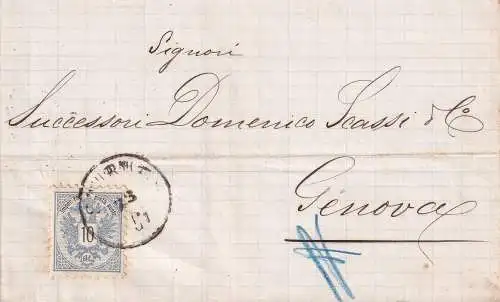 Signori
Successori Domenico Scassi & Co
Genova
10